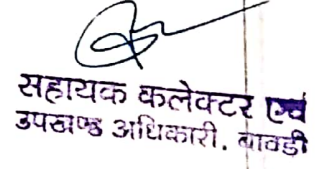 सहायक कलेक्टर एवं
उपखण्ड अधिकारी. बावडी